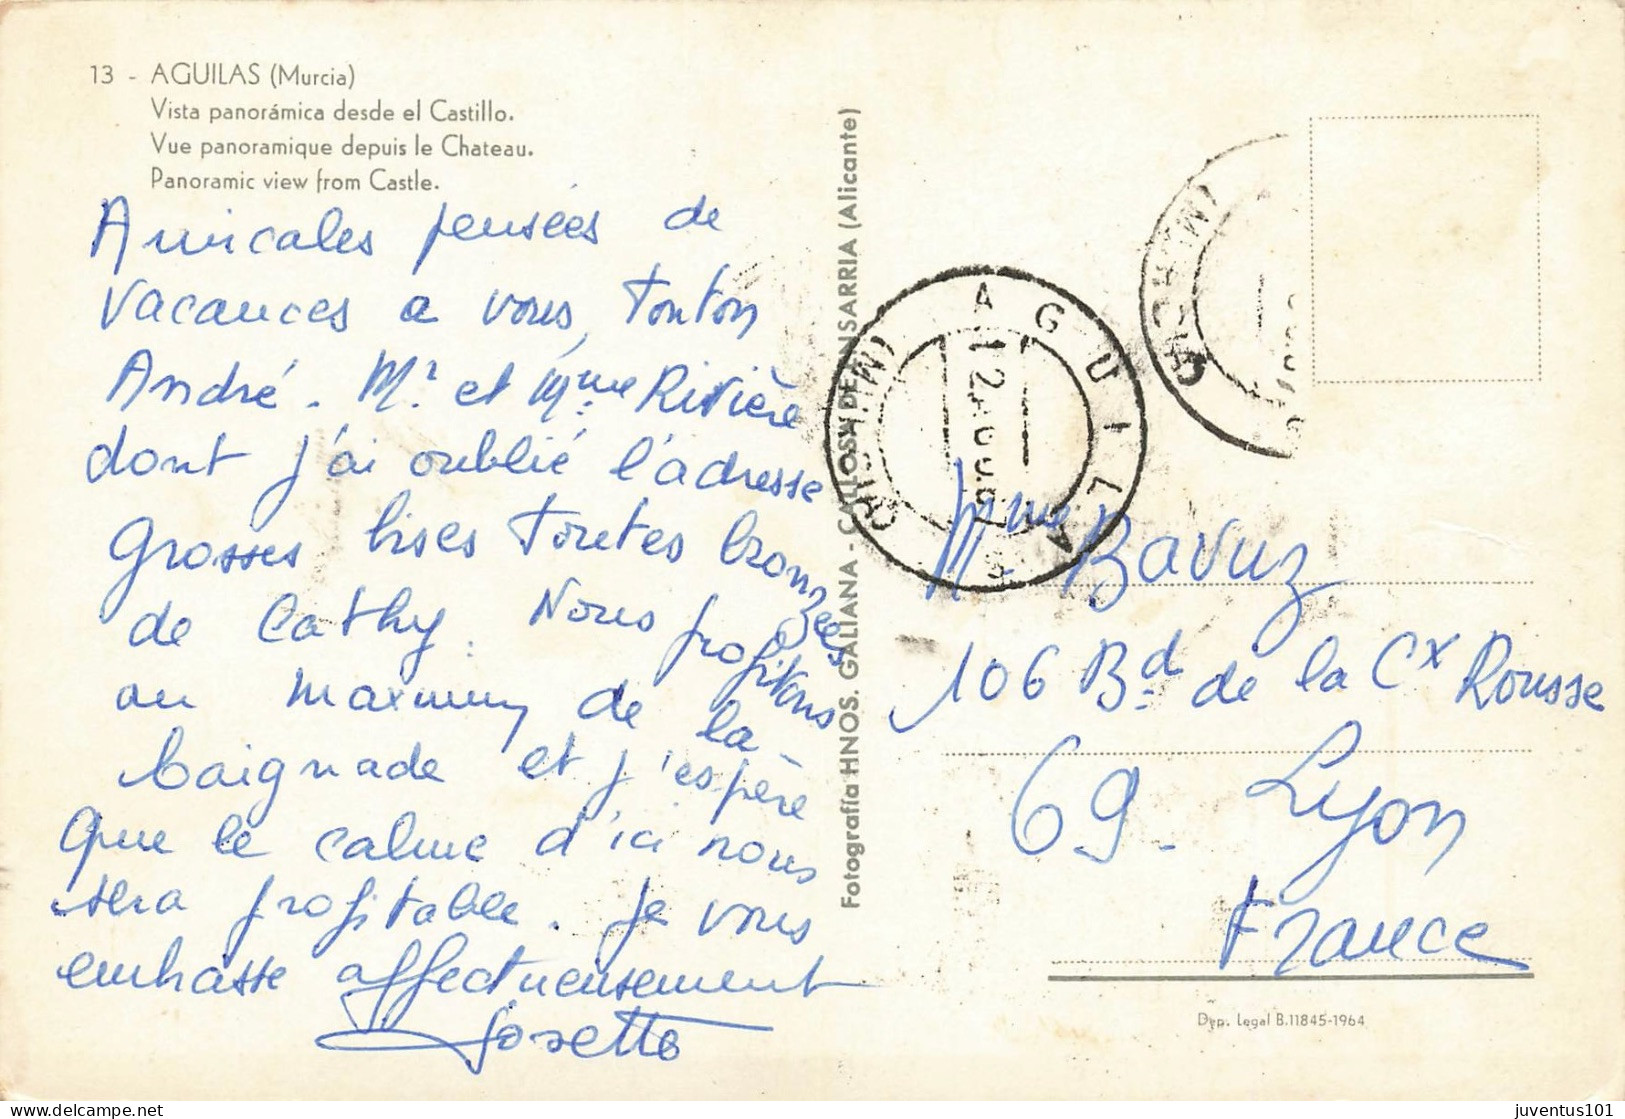 13 - AGUILAS (Murcia)
Vista panorámica desde el Castillo.
Vue panoramique depuis le Chateau.
Panoramic view from Castle.
Amicales pensées de
vacances a vous, Tonton
André. Mr et Mme Rivière
dont j'ai oublié l'adresse
Grosses bises toutes bronzées
de Cathy. Nous profitons
au maximum de la
baignade et j'espère
que le calme d'ici nous
sera profitable. Je vous
embrasse affectueusement
Josette
Fotografía HNOS. GALIANA - CALLOSA DE ENSARRIA (Alicante)
AGUILAS
Mme Bavuz
106 Bd de la Cx Rousse
69 - Lyon
France
Dep. Legal B.11845-1964
juventus101